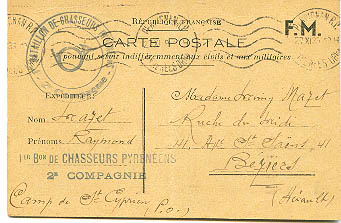 RÉPUBLIQUE FRANÇAISE
F.M.
CARTE POSTALE
pouvant servir indifféremment aux civils et aux militaires
BATAILLON DE CHASSEURS
EXPÉDITEUR:
Nom Mazet
Prénoms Raymond
1er Bon DE CHASSEURS PYRÉNÉENS
2e COMPAGNIE
Camp de St Cyprien (P.O.)
Madame Mazet
Ruche du
41, St 41
Beziers
(Hérault)